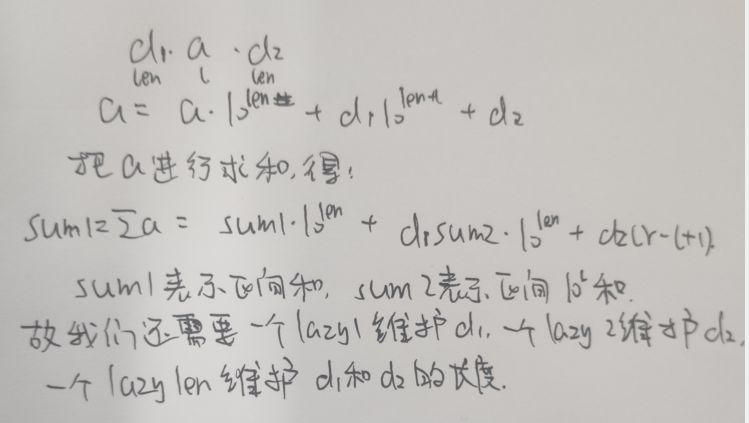 d₁ · a · d₂
len l len
a = a·10^len + d₁10^len+l + d₂
把a进行求和,得:
sum1=∑a = sum1·10^len + d₁sum2·10^len + d₂(r-l+1).
sum1表示区间和, sum2表示区间10^l和.
故我们还需要一个lazy1维护d₁, 一个lazy2维护d₂,
一个lazylen维护d₁和d₂的长度.